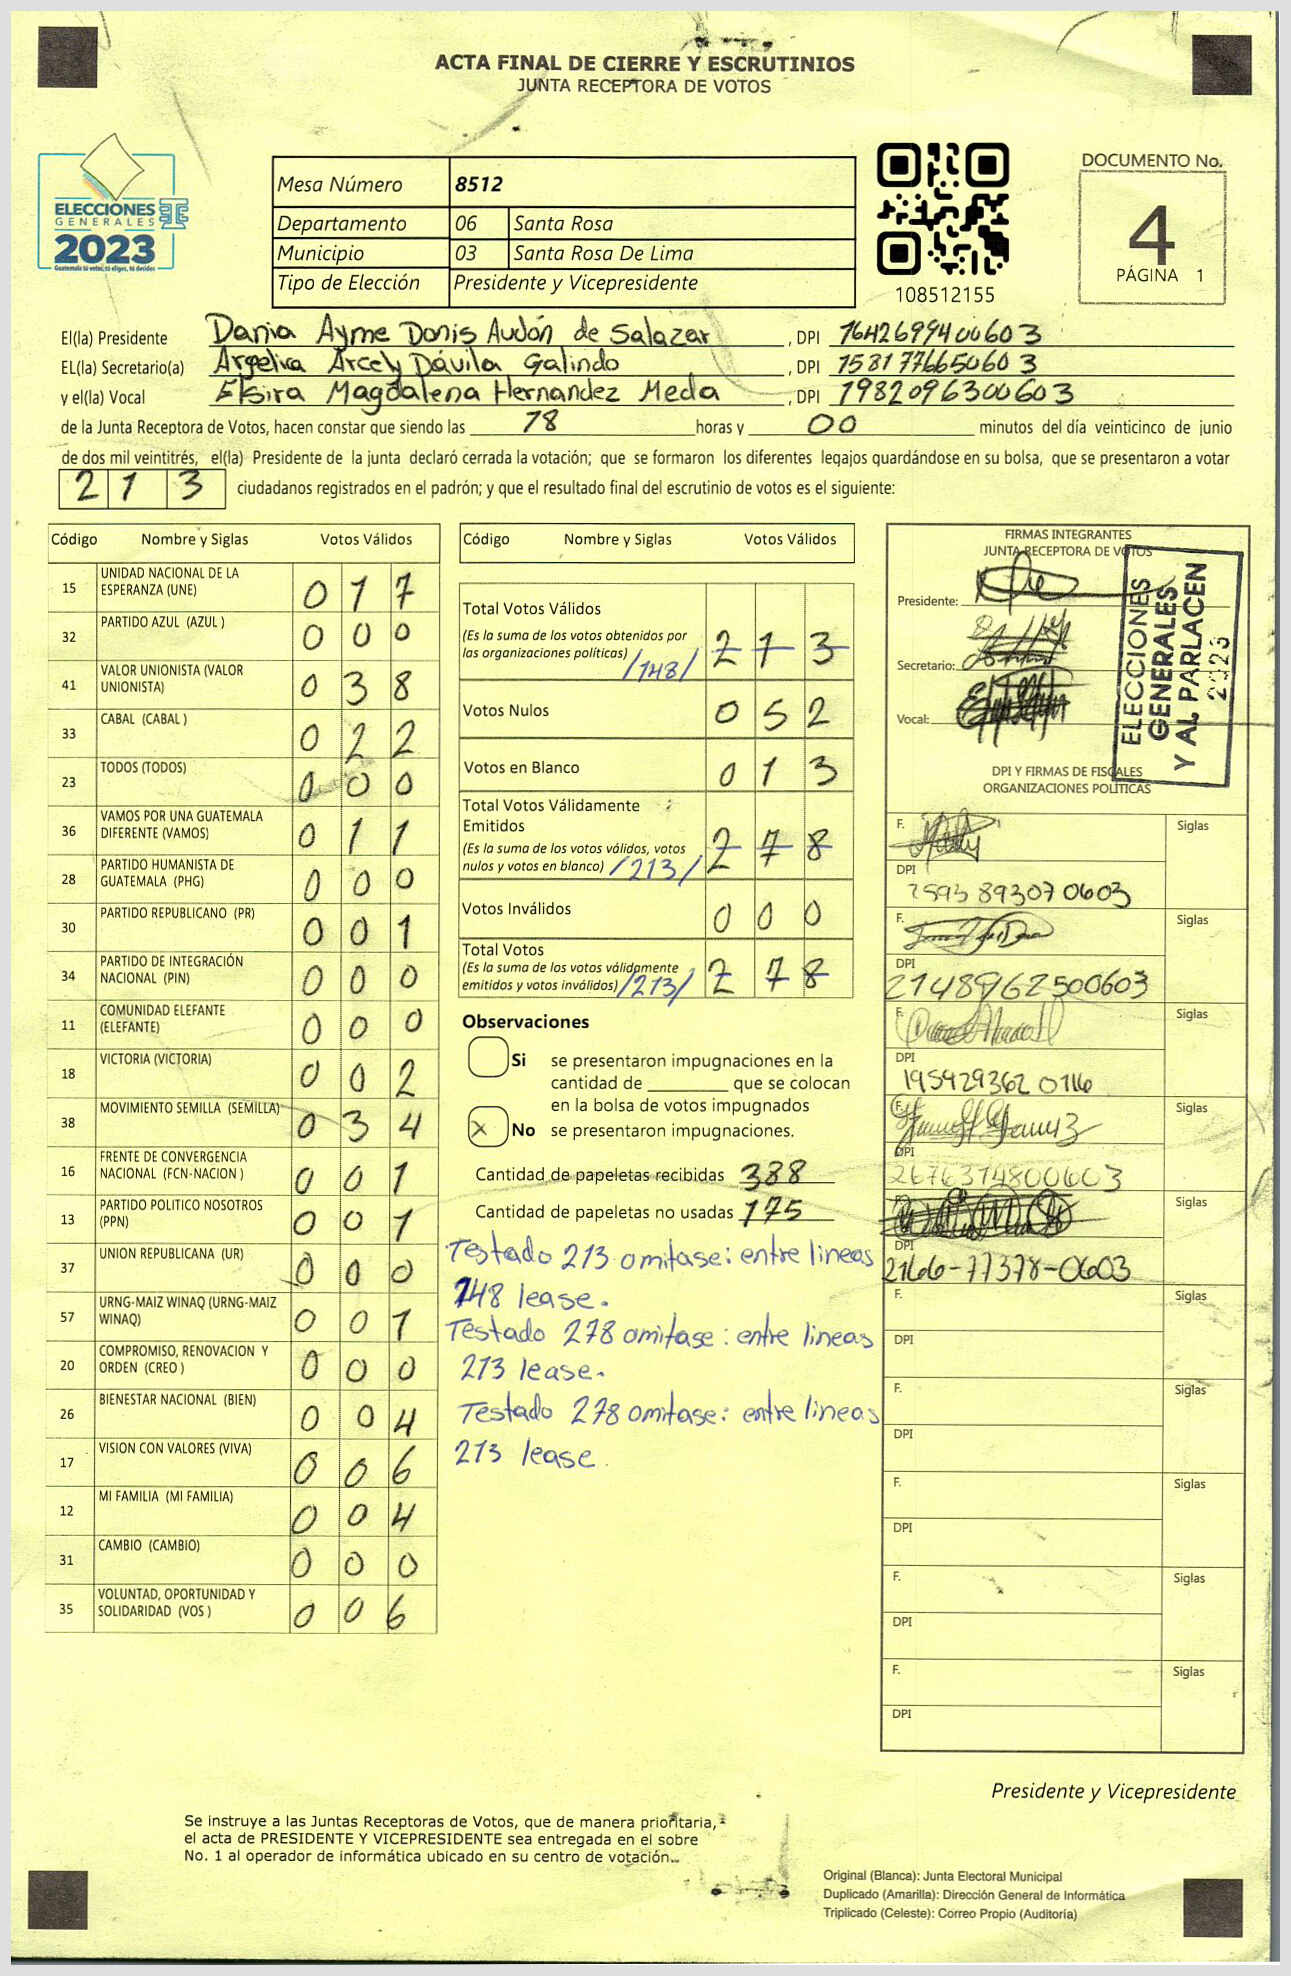 ACTA FINAL DE CIERRE Y ESCRUTINIOS
JUNTA RECEPTORA DE VOTOS
ELECCIONES
GENERALES
2023
Guatemala tú votas, tú eliges, tú decides
Mesa Número 8512
Departamento 06 Santa Rosa
Municipio 03 Santa Rosa De Lima
Tipo de Elección Presidente y Vicepresidente
108512155
DOCUMENTO No.
4
PÁGINA 1
El(la) Presidente Dania Ayme Donis Audón de Salazar, DPI 1642699400603
EL(la) Secretario(a) Argelira Arcely Dávila Galindo, DPI 1581776650603
y el(la) Vocal Elsira Magdalena Hernandez Meda, DPI 1982096300603
de la Junta Receptora de Votos, hacen constar que siendo las 18 horas y 00 minutos del día veinticinco de junio
de dos mil veintitrés, el(la) Presidente de la junta declaró cerrada la votación; que se formaron los diferentes legajos guardándose en su bolsa, que se presentaron a votar
213 ciudadanos registrados en el padrón; y que el resultado final del escrutinio de votos es el siguiente:
Código Nombre y Siglas Votos Válidos
15 UNIDAD NACIONAL DE LA
ESPERANZA (UNE) 0 1 7
32 PARTIDO AZUL (AZUL ) 0 0 0
41 VALOR UNIONISTA (VALOR
UNIONISTA) 0 3 8
33 CABAL (CABAL ) 0 2 2
23 TODOS (TODOS) 0 0 0
36 VAMOS POR UNA GUATEMALA
DIFERENTE (VAMOS) 0 1 1
28 PARTIDO HUMANISTA DE
GUATEMALA (PHG) 0 0 0
30 PARTIDO REPUBLICANO (PR) 0 0 1
34 PARTIDO DE INTEGRACIÓN
NACIONAL (PIN) 0 0 0
11 COMUNIDAD ELEFANTE
(ELEFANTE) 0 0 0
18 VICTORIA (VICTORIA) 0 0 2
38 MOVIMIENTO SEMILLA (SEMILLA) 0 3 4
16 FRENTE DE CONVERGENCIA
NACIONAL (FCN-NACION ) 0 0 1
13 PARTIDO POLITICO NOSOTROS
(PPN) 0 0 1
37 UNION REPUBLICANA (UR) 0 0 0
57 URNG-MAIZ WINAQ (URNG-MAIZ
WINAQ) 0 0 1
20 COMPROMISO, RENOVACION Y
ORDEN (CREO ) 0 0 0
26 BIENESTAR NACIONAL (BIEN) 0 0 4
17 VISION CON VALORES (VIVA) 0 0 6
12 MI FAMILIA (MI FAMILIA) 0 0 4
31 CAMBIO (CAMBIO) 0 0 0
35 VOLUNTAD, OPORTUNIDAD Y
SOLIDARIDAD (VOS ) 0 0 6
Código Nombre y Siglas Votos Válidos
Total Votos Válidos
(Es la suma de los votos obtenidos por
las organizaciones políticas) /148/ 2 1 3
Votos Nulos 0 5 2
Votos en Blanco 0 1 3
Total Votos Válidamente
Emitidos
(Es la suma de los votos válidos, votos
nulos y votos en blanco) /213/ 2 7 8
Votos Inválidos 0 0 0
Total Votos
(Es la suma de los votos válidamente
emitidos y votos inválidos) /213/ 2 7 8
Observaciones
Si se presentaron impugnaciones en la
cantidad de ________ que se colocan
en la bolsa de votos impugnados
X No se presentaron impugnaciones.
Cantidad de papeletas recibidas 388
Cantidad de papeletas no usadas 175
Testado 213 omitase: entre lineas
148 lease.
Testado 278 omitase: entre lineas
213 lease.
Testado 278 omitase: entre lineas
213 lease.
FIRMAS INTEGRANTES
JUNTA RECEPTORA DE VOTOS
Presidente:
Secretario:
Vocal:
ELECCIONES
GENERALES
Y AL PARLACEN
2023
DPI Y FIRMAS DE FISCALES
ORGANIZACIONES POLÍTICAS
F. Siglas
DPI
2593893070603
F. Siglas
DPI
2148962500603
F. Siglas
DPI
1959293620116
F. Siglas
DPI
2676374800603
F. Siglas
DPI
2166-77378-0603
F. Siglas
DPI
F. Siglas
DPI
F. Siglas
DPI
F. Siglas
DPI
F. Siglas
DPI
Presidente y Vicepresidente
Se instruye a las Juntas Receptoras de Votos, que de manera prioritaria,
el acta de PRESIDENTE Y VICEPRESIDENTE sea entregada en el sobre
No. 1 al operador de informática ubicado en su centro de votación.
Original (Blanca): Junta Electoral Municipal
Duplicado (Amarilla): Dirección General de Informática
Triplicado (Celeste): Correo Propio (Auditoría)